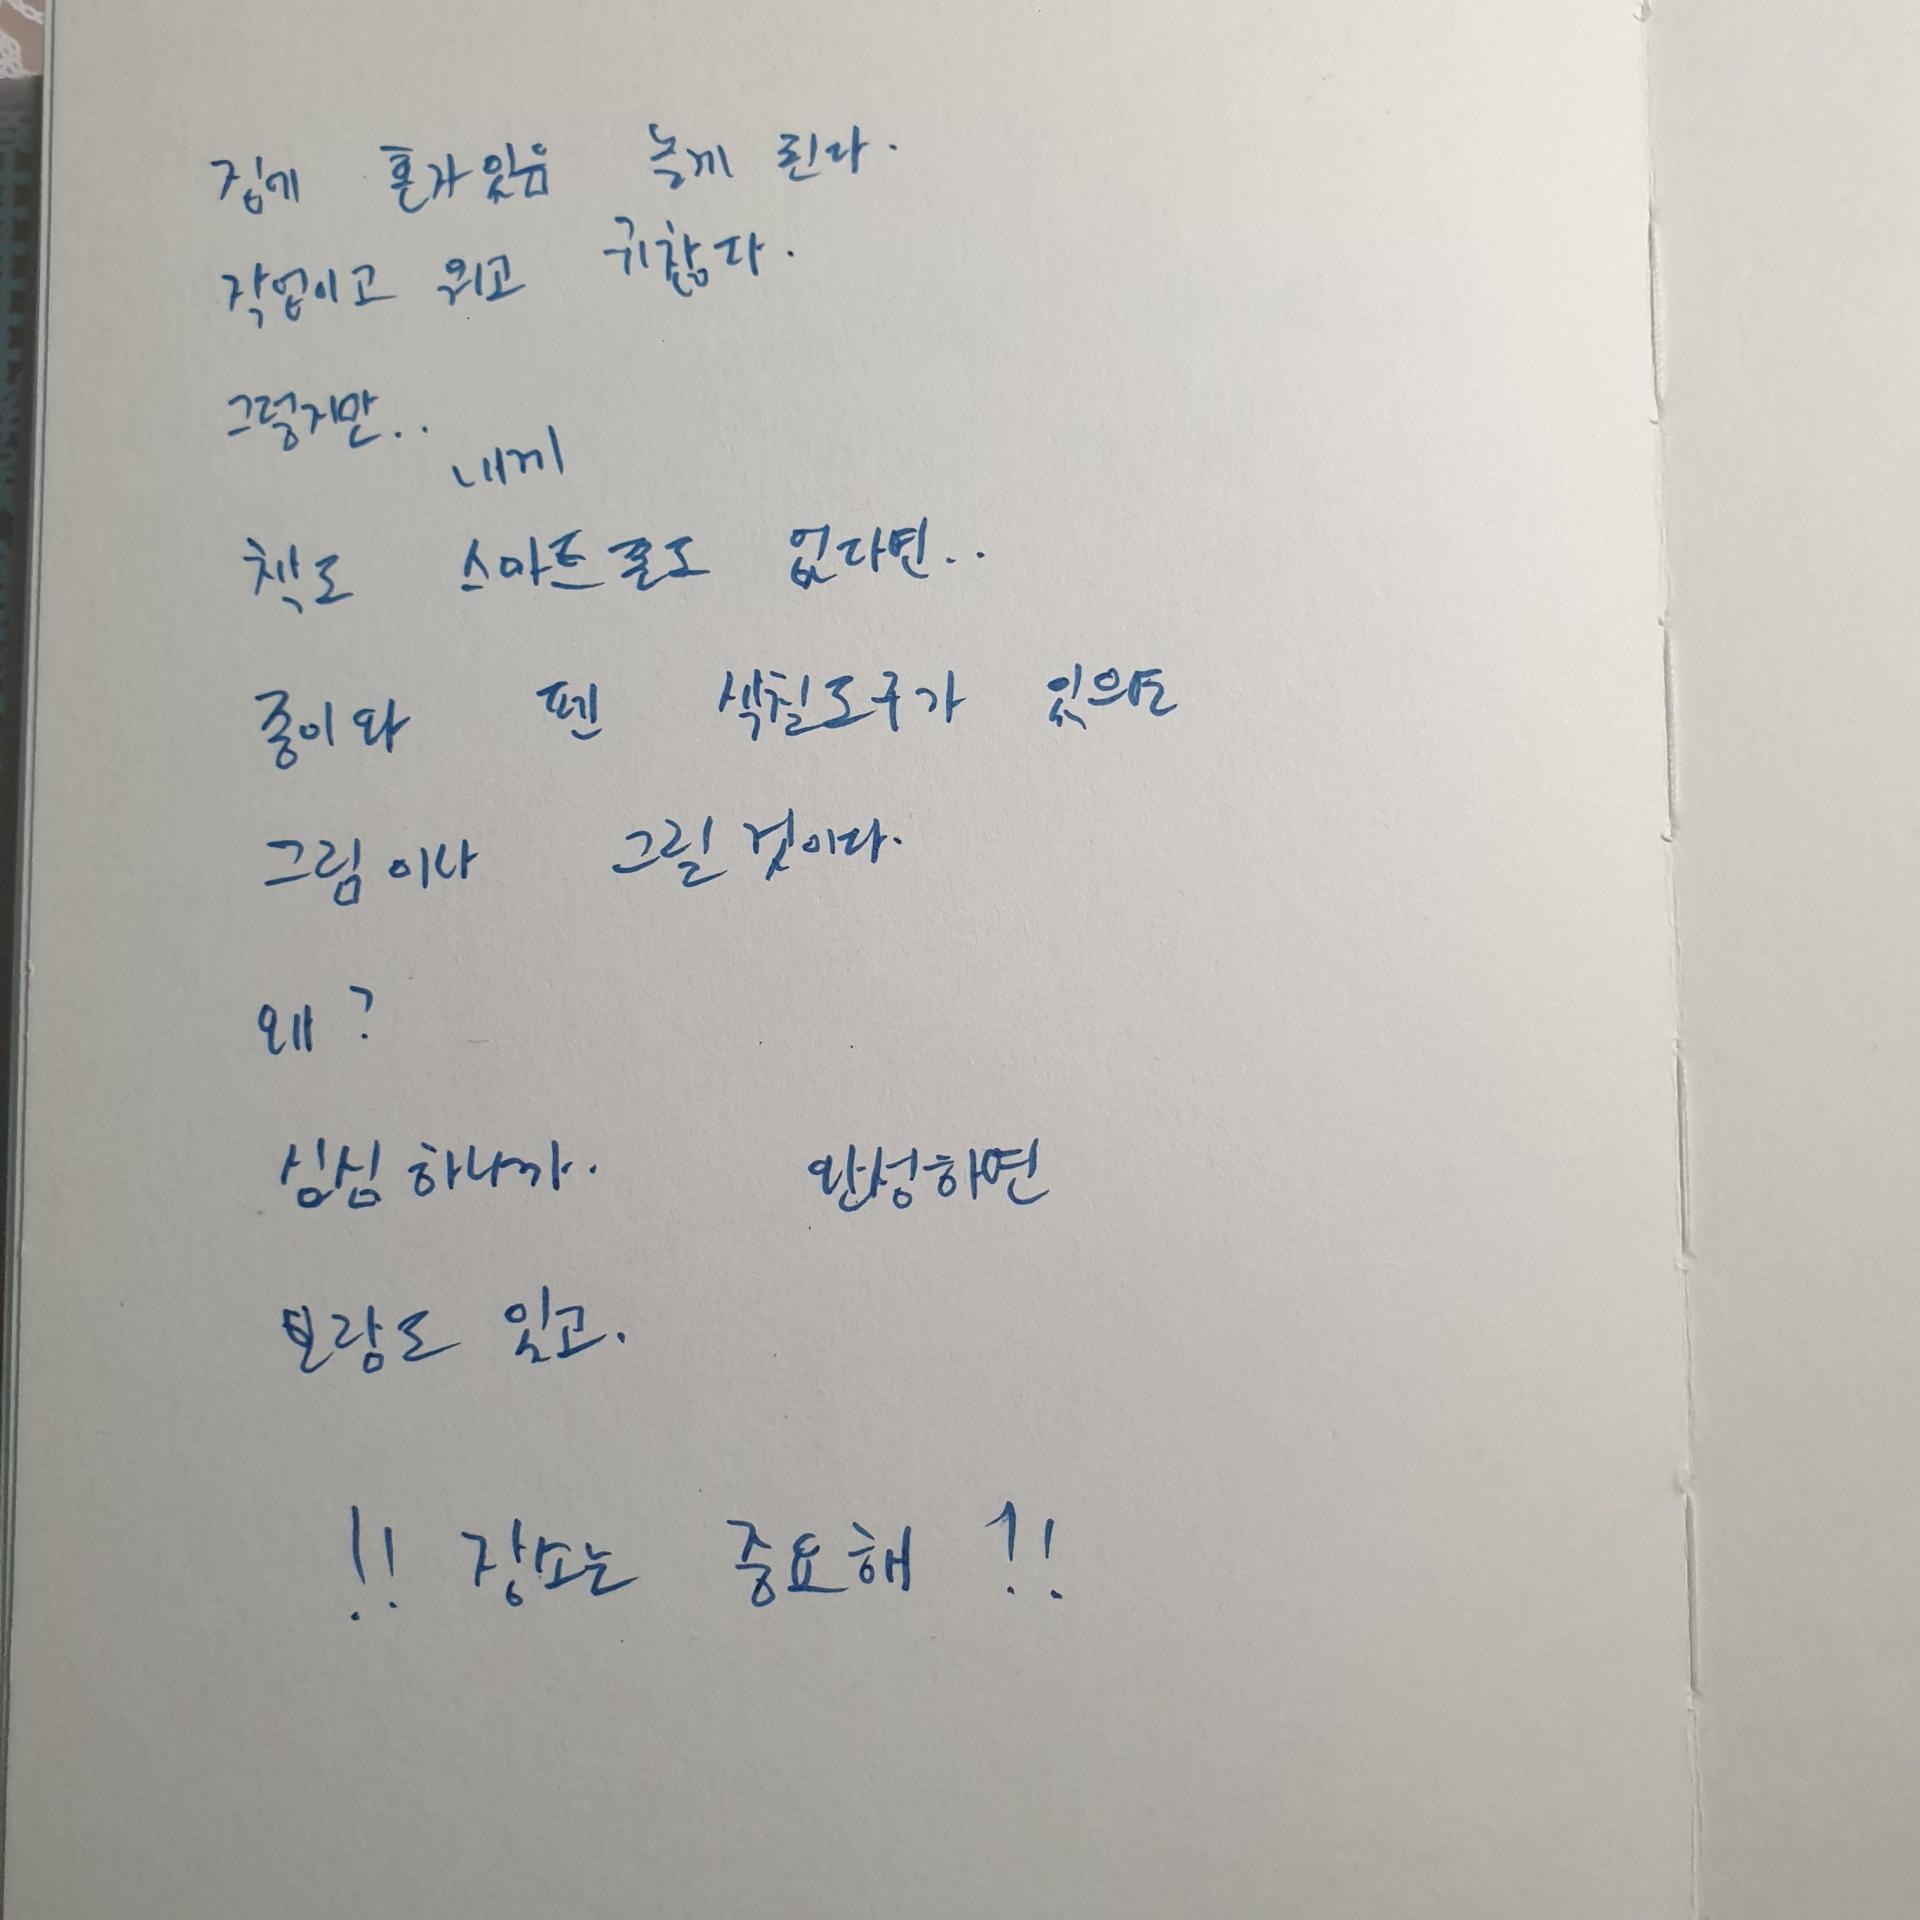 집에 혼자있음 늘게 된다.
작업이고 뭐고 귀찮다.
그렇지만..
내게
책도 스마트폰도 없다면..
종이와 펜 색칠도구가 있으면
그림이나 그릴 것이다.
왜?
심심하니까. 완성하면
보람도 있고.
!! 장소는 중요해 !!